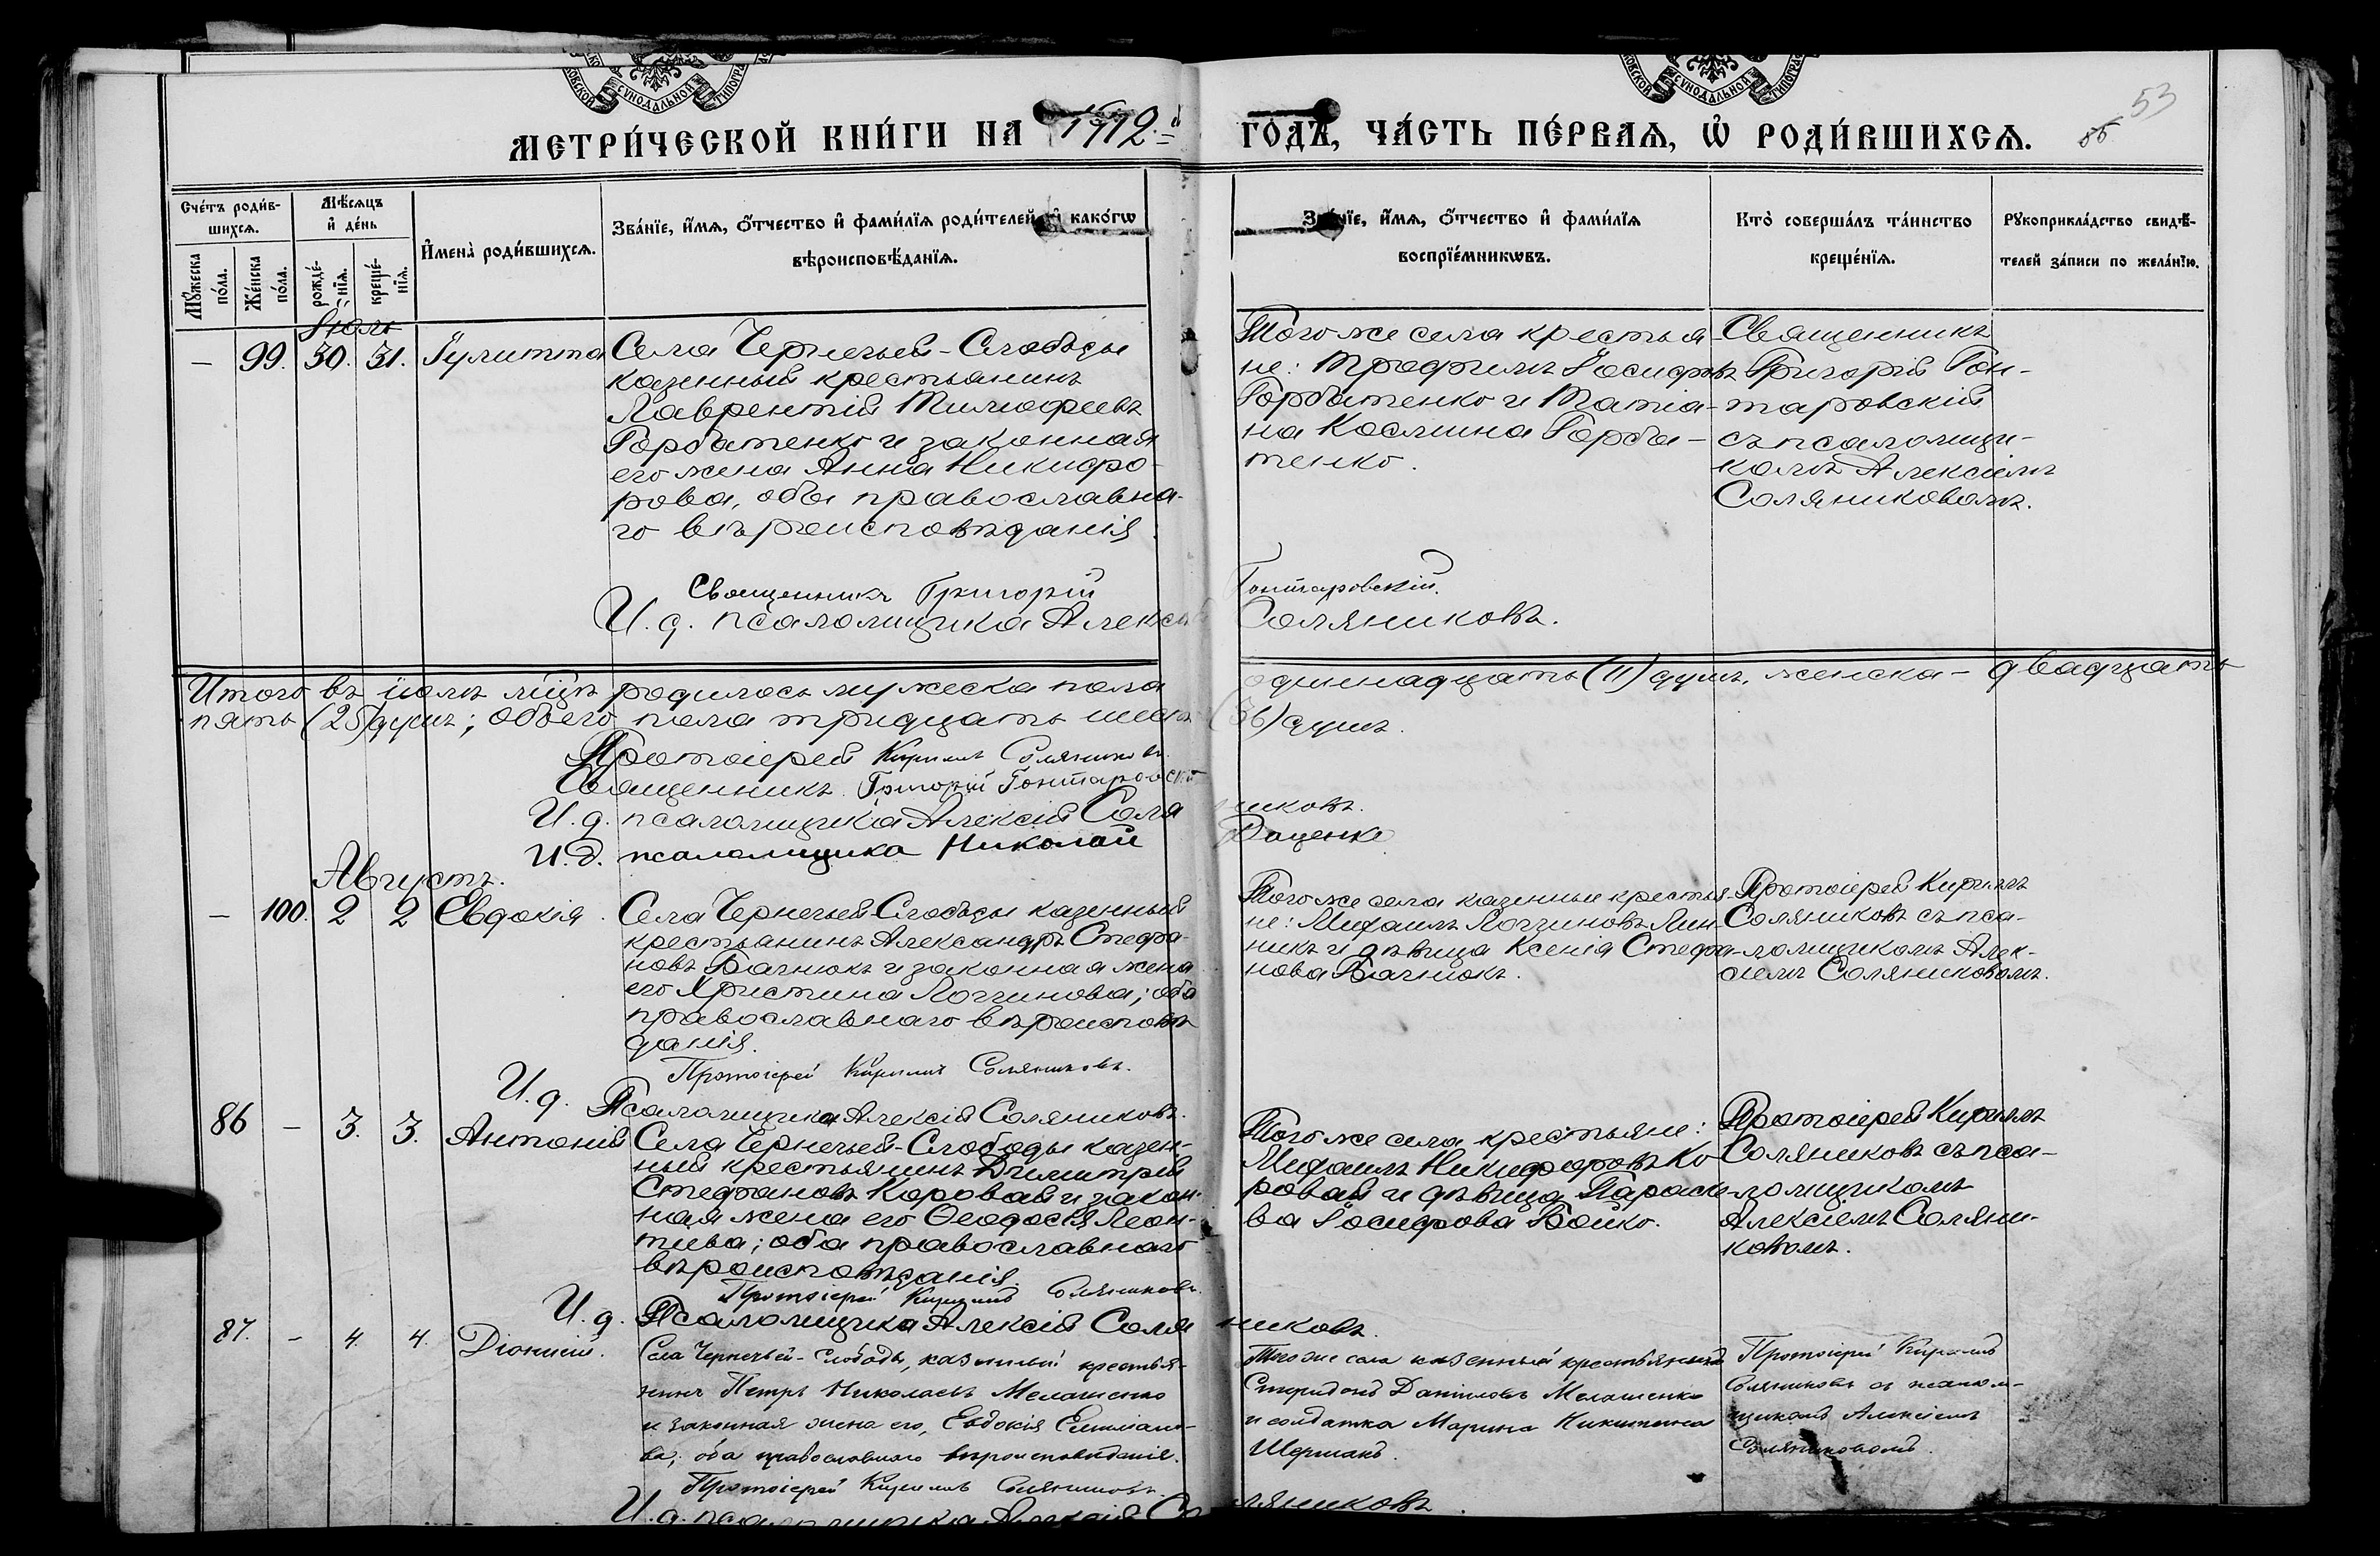 МОСКОВСКОЙ СѴНОДАЛЬНОЙ ТИПОГРАФ
МЕТРИ́ЧЕСКОЙ КНИ́ГИ НА 1912.й ГОДЪ, ЧА́СТЬ ПЕ́РВАЯ, Ѡ РОДИ́ВШИХСЯ.
53
Сче́тъ роди́в-
шихся.
Мѣ́сяцъ
и де́нь
Му́жеска
по́ла.
Же́нска
по́ла.
рожде́-
нїя.
креще́-
нїя.
И҆мена̀ роди́вшихся.
Зва́нїе, и҆́мя, ѻ҆́тчество и҆ фами́лїя роди́телей, и҆ како́гѡ
вѣроисповѣ́данїя.
Зва́нїе, и҆́мя, ѻ҆́тчество и҆ фами́лїя
воспрїе́мникѡвъ.
Кто̀ соверша́лъ та́инство
креще́нїя.
Рꙋкоприкла́дство свидѣ́-
телей за́писи по жела́нїю.
Іюль
— 99. 30. 31. Іулитта
Села Чернечьей-Слободы
казенный крестьянинъ
Лаврентій Тимофеевъ
Горбатенко и законная
его жена Анна Никифо-
рова, оба православна-
го вѣроисповѣданія.
Того же села крестья-
не: Трофимъ Іосифовъ
Горбатенко и Татіа-
на Космина Горба-
тенко.
Священникъ
Григорій Гон-
таровскій
съ псаломщи-
комъ Алексіемъ
Соляниковомъ.
Священникъ Григорій Гонтаровскій.
И. д. псаломщика Алексій Соляниковъ.
Итого въ іюлѣ мѣцѣ родилось мужеска пола одиннадцать (11) душъ, женска – двадцать
пять (25) душъ; обоего пола тридцать шесть (36) душъ.
Протоіерей Кириллъ Соляниковъ.
Священникъ Григорій Гонтаровскій
И. д. псаломщика Алексій Соляниковъ.
И. д. псаломщика Николай Даценко
Августъ.
— 100. 2 2 Евдокія.
Села Чернечьей-Слободы казенный
крестьянинъ Александръ Стефа-
новъ Бачнюкъ и законная жена
его Христина Логгинова; оба
православнаго вѣроисповѣ
данія.
Того же села казенные крестья-
не: Михаилъ Логгиновъ Лин-
никъ и дѣвица Ксенія Стефа-
нова Бачнюкъ.
Протоіерей Кириллъ
Соляниковъ съ пса-
ломщикомъ Алек-
сіемъ Соляниковомъ.
Протоіерей Кириллъ Соляниковъ.
И. д. Псаломщика Алексій Соляниковъ.
86 — 3. 3. Антоній
Села Чернечьей-Слободы казен-
ный крестьянинъ Димитрій
Стефановъ Коровай и закон-
ная жена его Ѳеодосія Леон-
тіева; оба православнаго
вѣроисповѣданія.
Того же села крестьяне:
Михаилъ Никифоровъ Ко
ровай и дѣвица Параске-
ва Іосифова Бойко.
Протоіерей Кириллъ
Соляниковъ съ пса-
ломщикомъ
Алексіемъ Соляни-
ковомъ.
Протоіерей Кириллъ Соляниковъ.
И. д. Псаломщика Алексій Соляниковъ.
87. — 4. 4. Діонисій.
Села Чернечьей-Слободы, казенный крестья-
нинъ Петръ Николаевъ Мелашенко
и законная жена его, Евдокія Емиліано-
ва; оба православнаго вѣроисповѣданія.
Того же села казенный крестьянинъ
Спиридонъ Даніиловъ Мелашенко
и солдатка Марина Никитина
Шерманъ.
Протоіерей Кириллъ
Соляниковъ съ псалом-
щикомъ Алексіемъ
Соляниковомъ.
Протоіерей Кириллъ Соляниковъ.
И. д. псаломщика Алексій Соляниковъ.